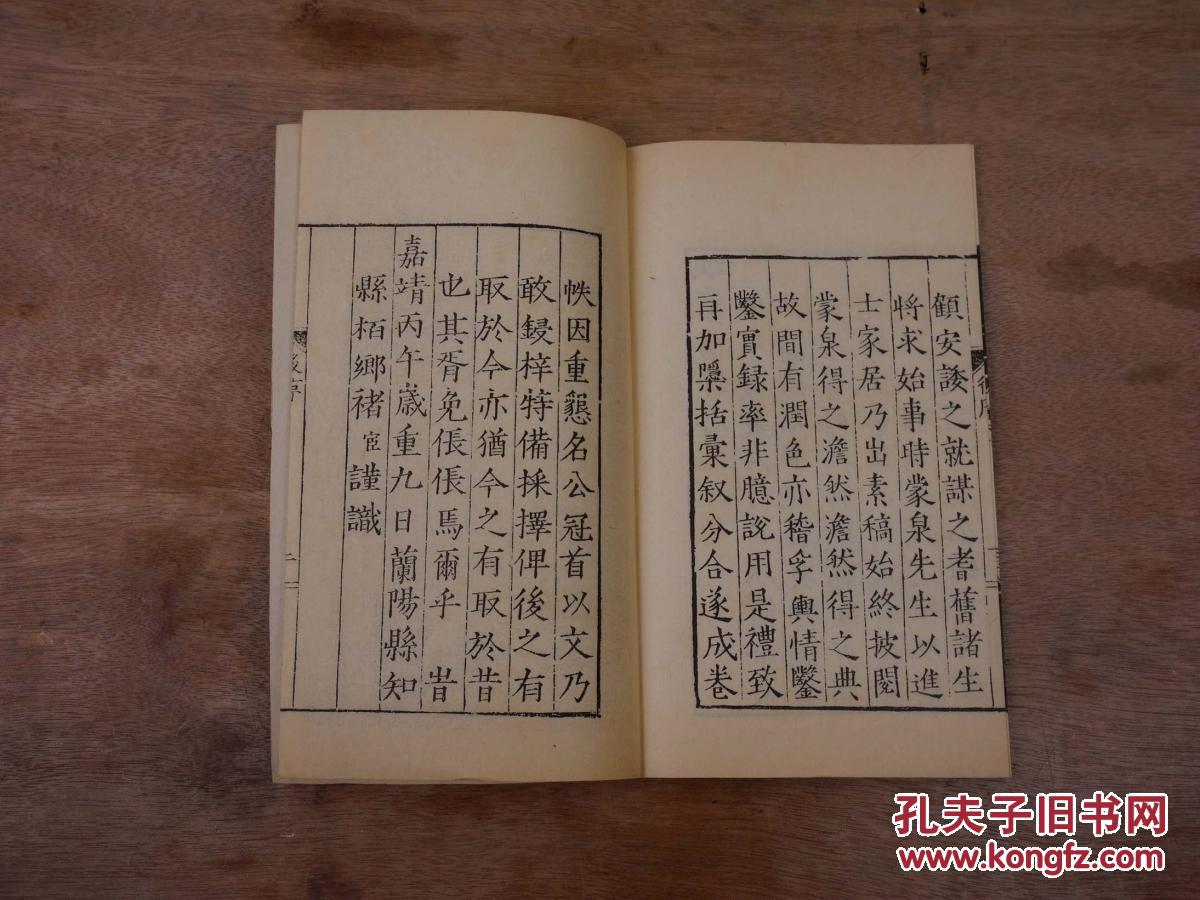 顧安諉之就謀之耆舊諸生
將求始事時蒙泉先生以進
士家居乃出素稿始終披閱
蒙泉得之澹然澹然得之典
故間有潤色亦稽孚輿情鑿
鑿實録率非臆說用是禮致
再加檃括彙叙分合遂成卷
帙因重懇名公冠首以文乃
敢鋟梓特備採擇俾後之有
取於今亦猶今之有取於昔
也其胥免倀倀焉爾乎 旹
嘉靖丙午歲重九日蘭陽縣知
縣栢鄉禇宦謹識
孔夫子旧书网
www.kongfz.com